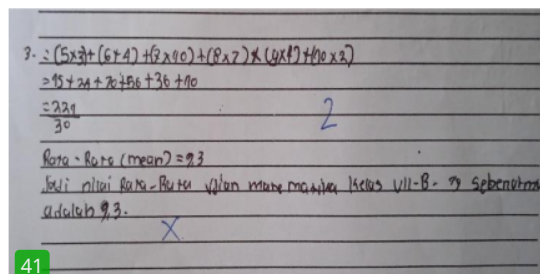 3. = (5x3)+(6x4)+(7x10)+(8x7)x(9x4)+(10x2)
= 15+24+70+56+36+10
= 221
30
2
Rata-Rata (mean) = 9,3
Jadi nilai Rata-Rata Ujian matematika kelas VII-B- yg sebenarnya
adalah 9,3.
X
41